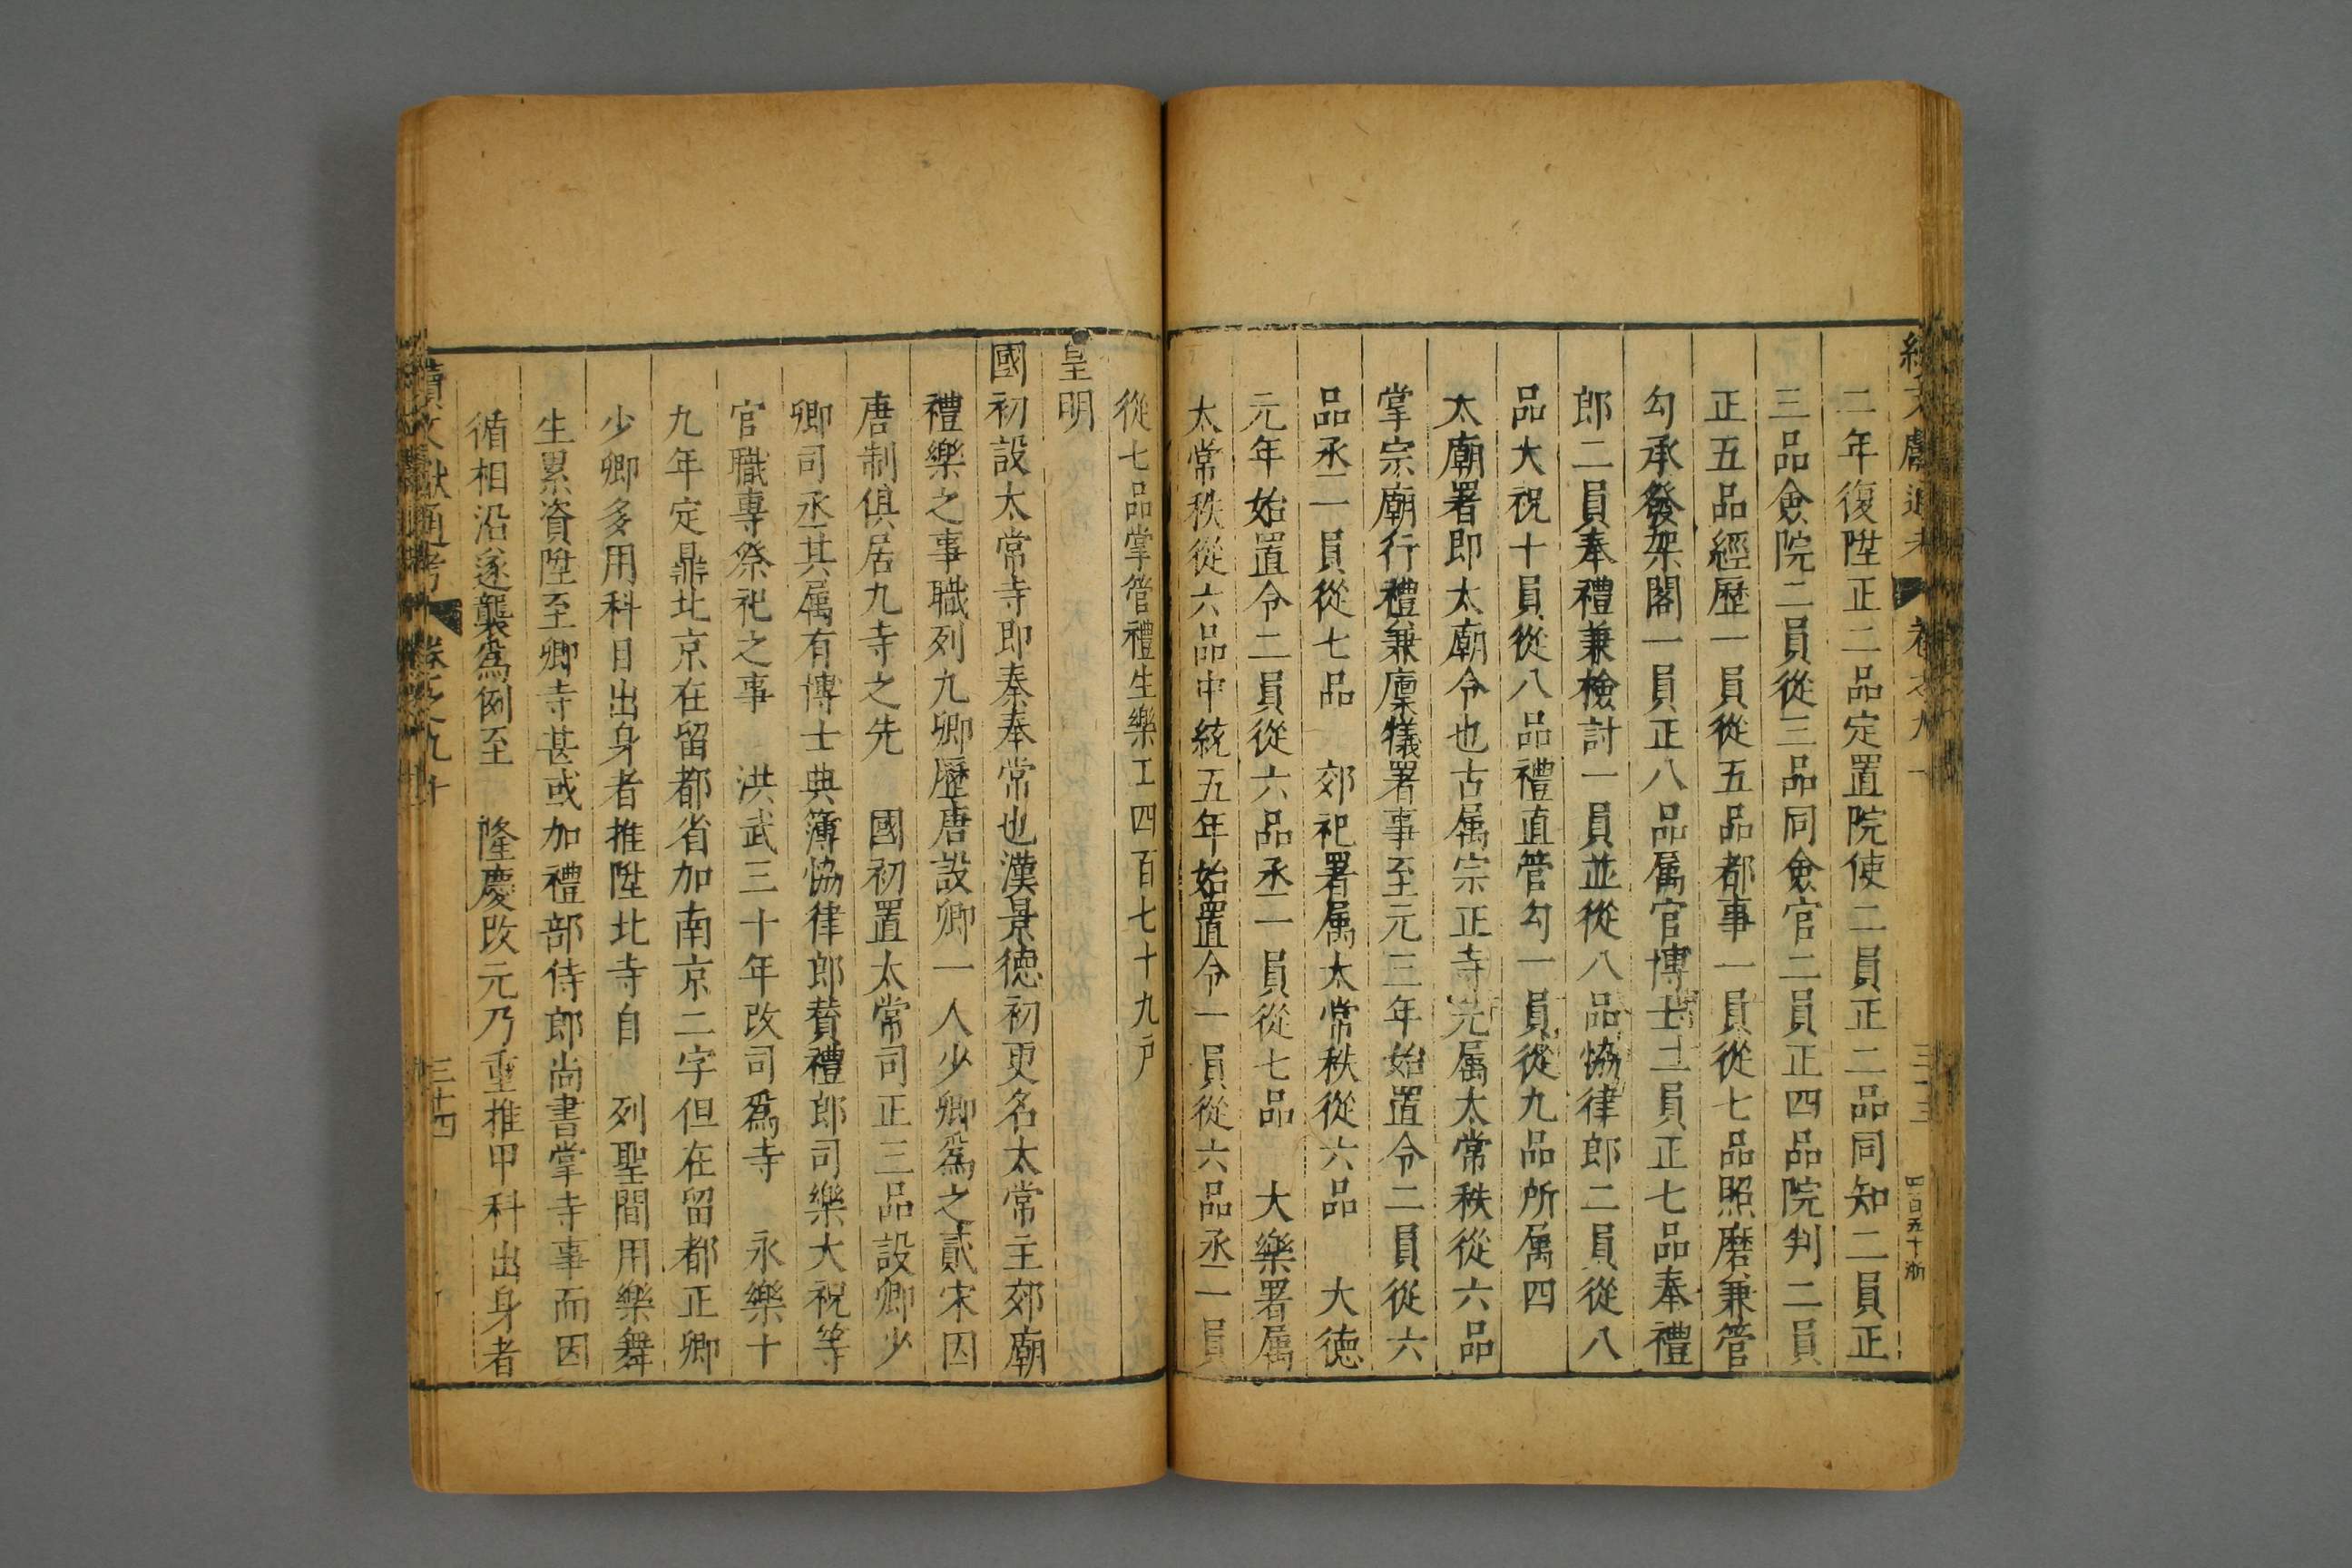 二年復陞正二品定置院使二員正二品同知二員正
三品僉院二員從三品同僉官二員正四品院判二員
正五品經歷一員從五品都事一員從七品照磨兼管
勾承發架閣一員正八品属官博士二員正七品奉禮
郎二員奉禮兼檢討一員並從八品協律郎二員從八
品大祝十員從八品禮直管勾一員從九品所属四
太廟署即太廟令也古属宗正寺元属太常秩從六品
掌宗廟行禮兼廩犧署事至元三年始置令二員從六
品丞一員從七品 郊祀署属太常秩從六品 大德
元年始置令二員從六品丞一員從七品 大樂署属
太常秩從六品中統五年始置令一員從六品丞一員
從七品掌管禮生樂工四百七十九戶
皇明
國初設太常寺即秦奉常也漢景德初更名太常主郊廟
禮樂之事職列九卿歷唐設卿一人少卿爲之貳宋因
唐制俱居九寺之先 國初置太常司正三品設卿少
卿司丞其属有博士典簿協律郎賛禮郎司樂大祝等
官職專祭祀之事 洪武三十年改司爲寺 永樂十
九年定鼎北京在留都省加南京二字但在留都正卿
少卿多用科目出身者推陞北寺自 列聖間用樂舞
生累資陞至卿寺甚或加禮部侍郎尚書掌寺事而因
循相沿遂襲爲例至 隆慶改元乃重推甲科出身者
續文獻通考 三十四